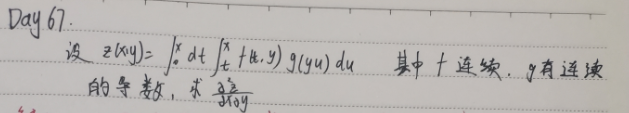 Day 67.
设 z(x,y)=∫₀ˣ dt ∫ₜˣ f(t,y) g(yu) du 其中 f 连续. g有连续
的导数, 求 ∂²z/∂x∂y